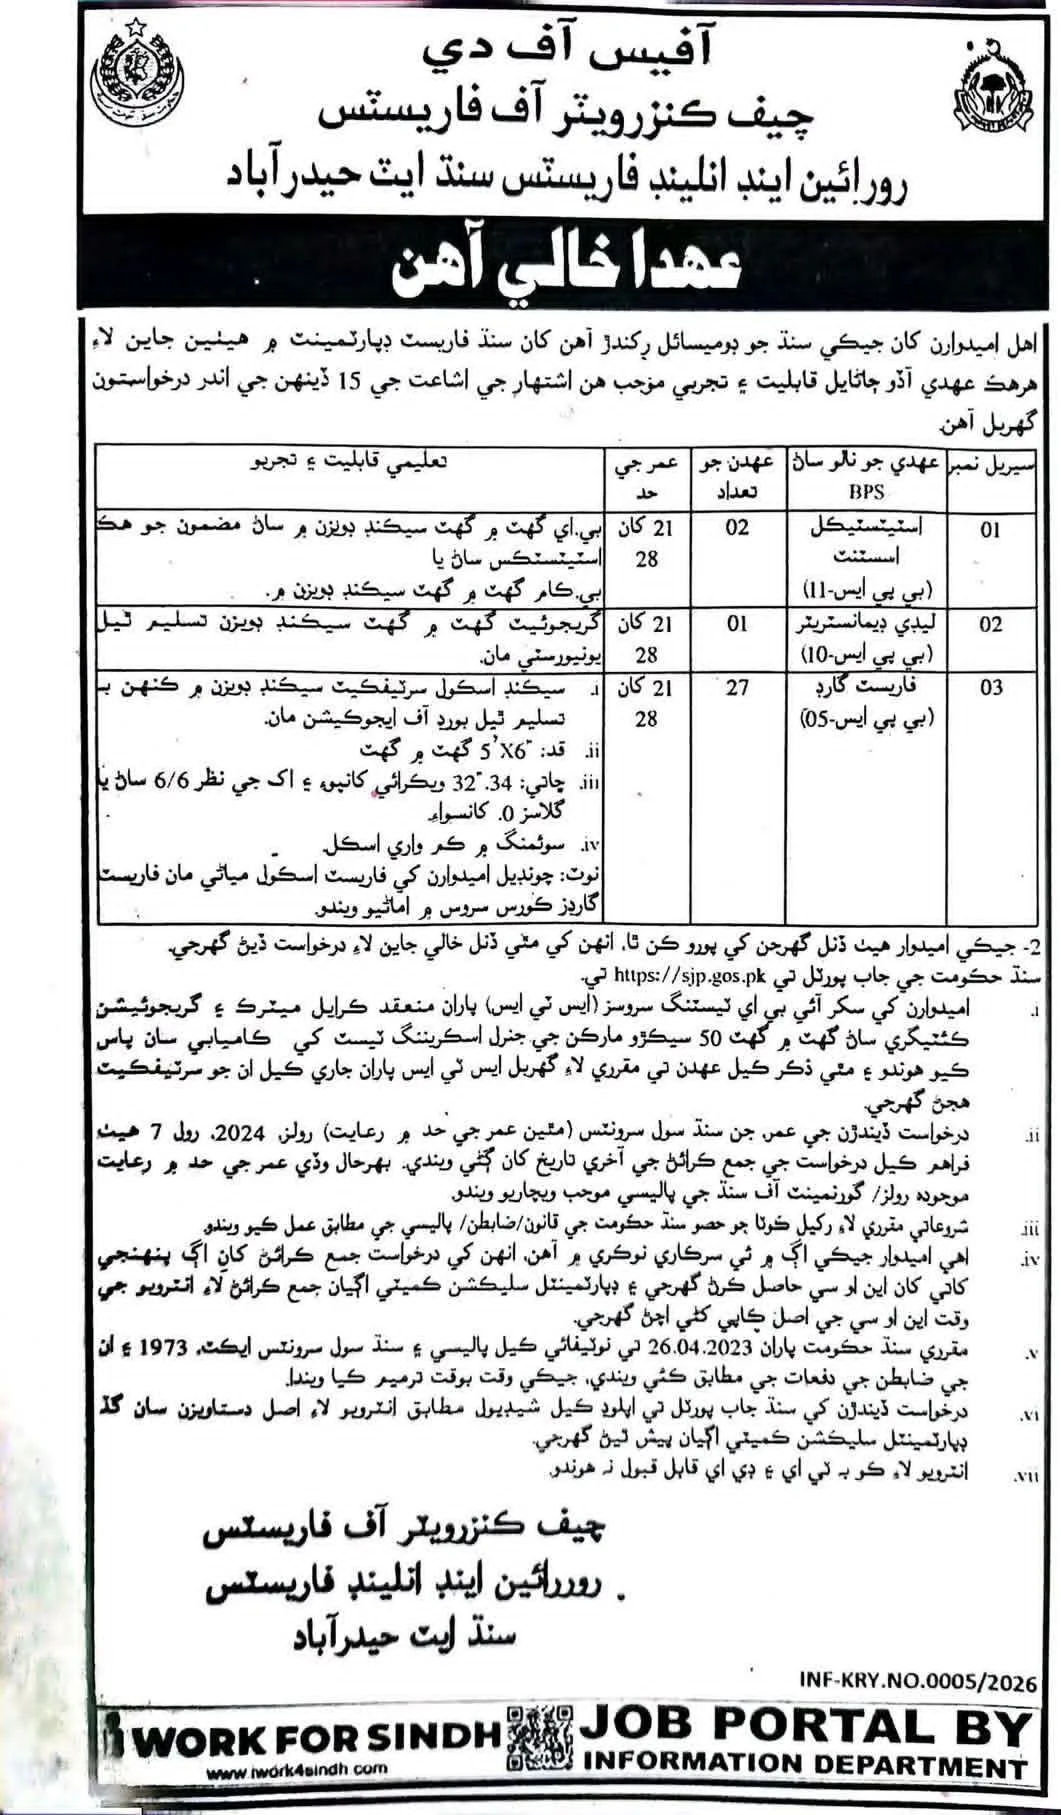 آفيس آف دي
چيف ڪنزرويٽر آف فاريسٽس
رورائين اينڊ انلينڊ فاريسٽس سنڌ ايٽ حيدرآباد
عهدا خالي آهن
اهل اميدوارن کان جيڪي سنڌ جو ڊوميسائل رکندڙ آهن کان سنڌ فاريسٽ ڊپارٽمينٽ ۾ هيٺين جاين لاءِ
هرهڪ عهدي آڏو ڄاڻايل قابليت ۽ تجربي موجب هن اشتهار جي اشاعت جي 15 ڏينهن جي اندر درخواستون
گهربل آهن.
سيريل نمبر | عهدي جو نالو ساڻ BPS | عهدن جو تعداد | عمر جي حد | تعليمي قابليت ۽ تجربو
01 | اسٽيٽسٽيڪل اسسٽنٽ (بي پي ايس-11) | 02 | 21 کان 28 | بي.اي گهٽ ۾ گهٽ سيڪنڊ ڊويزن ۾ ساڻ مضمون جو هڪ
اسٽيٽسٽڪس ساڻ يا
بي.ڪام گهٽ ۾ گهٽ سيڪنڊ ڊويزن ۾.
02 | ليڊي ڊيمانسٽريٽر (بي پي ايس-10) | 01 | 21 کان 28 | گريجوئيٽ گهٽ ۾ گهٽ سيڪنڊ ڊويزن تسليم ٿيل
يونيورسٽي مان.
03 | فاريسٽ گارڊ (بي پي ايس-05) | 27 | 21 کان 28 | i. سيڪنڊ اسڪول سرٽيفڪيٽ سيڪنڊ ڊويزن ۾ ڪنهن بہ
تسليم ٿيل بورڊ آف ايجوڪيشن مان.
ii. قد: 5'X6" گهٽ ۾ گهٽ
iii. ڇاتي: 34."32 ويڪرائي کانپوءِ ۽ اک جي نظر 6/6 ساڻ يا
گلاسز 0. کانسواءِ
iv. سوئمنگ ۾ ڪم واري اسڪل.
نوٽ: چونڊيل اميدوارن کي فاريسٽ اسڪول مياڻي مان فاريسٽ
گارڊز ڪورس سروس ۾ اماڻيو ويندو.
2- جيڪي اميدوار هيٺ ڏنل گهرجن کي پورو ڪن ٿا، انهن کي مٿي ڏنل خالي جاين لاءِ درخواست ڏيڻ گهرجي.
سنڌ حڪومت جي جاب پورٽل تي https://sjp.gos.pk تي.
i. اميدوارن کي سکر آئي بي اي ٽيسٽنگ سروسز (ايس ٽي ايس) پاران منعقد ڪرايل ميٽرڪ ۽ گريجوئيشن
ڪئٽيگري ساڻ گهٽ ۾ گهٽ 50 سيڪڙو مارڪن جي جنرل اسڪريننگ ٽيسٽ کي ڪاميابي سان پاس
ڪيو هوندو ۽ مٿي ذڪر ڪيل عهدن تي مقرري لاءِ گهربل ايس ٽي ايس پاران جاري ڪيل ان جو سرٽيفڪيٽ
هجڻ گهرجي.
ii. درخواست ڏيندڙن جي عمر، جن سنڌ سول سرونٽس (مٿين عمر جي حد ۾ رعايت) رولز، 2024، رول 7 هيٺ
فراهم ڪيل درخواست جي جمع ڪرائڻ جي آخري تاريخ کان ڳڻي ويندي. بهرحال وڏي عمر جي حد ۾ رعايت
موجوده رولز/ گورنمينٽ آف سنڌ جي پاليسي موجب ويچاريو ويندو.
iii. شروعاتي مقرري لاءِ رکيل ڪوٽا جو حصو سنڌ حڪومت جي قانون/ضابطن/ پاليسي جي مطابق عمل ڪيو ويندو.
iv. اهي اميدوار جيڪي اڳ ۾ ئي سرڪاري نوڪري ۾ آهن، انهن کي درخواست جمع ڪرائڻ کان اڳ پنهنجي
کاتي کان اين او سي حاصل ڪرڻ گهرجي ۽ ڊپارٽمينٽل سليڪشن ڪميٽي اڳيان جمع ڪرائڻ لاءِ انٽرويو جي
وقت اين او سي جي اصل ڪاپي کڻي اچڻ گهرجي.
v. مقرري سنڌ حڪومت پاران 26.04.2023 تي نوٽيفائي ڪيل پاليسي ۽ سنڌ سول سرونٽس ايڪٽ، 1973 ۽ ان
جي ضابطن جي دفعات جي مطابق ڪئي ويندي، جيڪي وقت بوقت ترميم ڪيا ويندا.
vi. درخواست ڏيندڙن کي سنڌ جاب پورٽل تي اپلوڊ ڪيل شيڊيول مطابق انٽرويو لاءِ اصل دستاويزن سان گڏ
ڊپارٽمينٽل سليڪشن ڪميٽي اڳيان پيش ٿيڻ گهرجي.
vii. انٽرويو لاءِ ڪو بہ ٽي اي ۽ ڊي اي قابل قبول نہ هوندو.
چيف ڪنزرويٽر آف فاريسٽس
روررائين اينڊ انلينڊ فاريسٽس
سنڌ ايٽ حيدرآباد
INF-KRY.NO.0005/2026
i WORK FOR SINDH
www.iwork4sindh.com
JOB PORTAL BY
INFORMATION DEPARTMENT